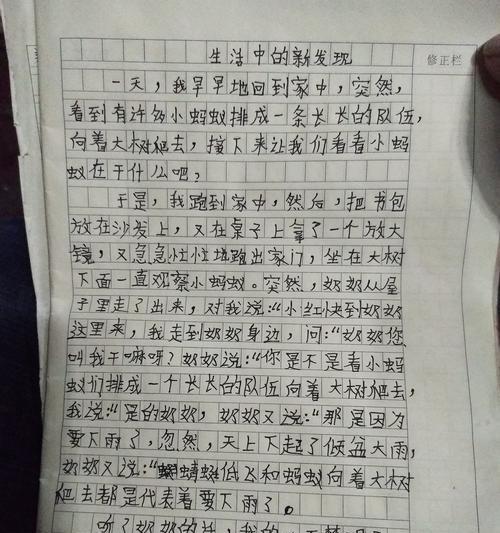 生活中的新发现
修正栏
一天，我早早地回到家中，突然，
看到有许多小蚂蚁排成一条长长的队伍，
向着大树爬去，接下来让我们看看小蚂
蚁在干什么吧？
于是，我跑到家中，然后，把书包
放在沙发上，又在桌子上拿了一个放大
镜，又急急忙忙地跑出家门，坐在大树
下面一直观察小蚂蚁。突然，奶奶从屋
子里走了出来，对我说：“小红快到奶奶
这里来，我走到奶奶身边，问：“奶奶您
叫我干嘛呀？奶奶说：“你是不是看小蚂
蚁们排成一个长长的队伍向着大树爬去，
我说：“是的奶奶，奶奶又说：“那是因为
要下雨了，忽然，天上下起了倾盆大雨，
奶奶又说：“蜻蜓低飞和蚂蚁向着大树
爬去都是代表着要下雨了。
听了奶奶的话，我的